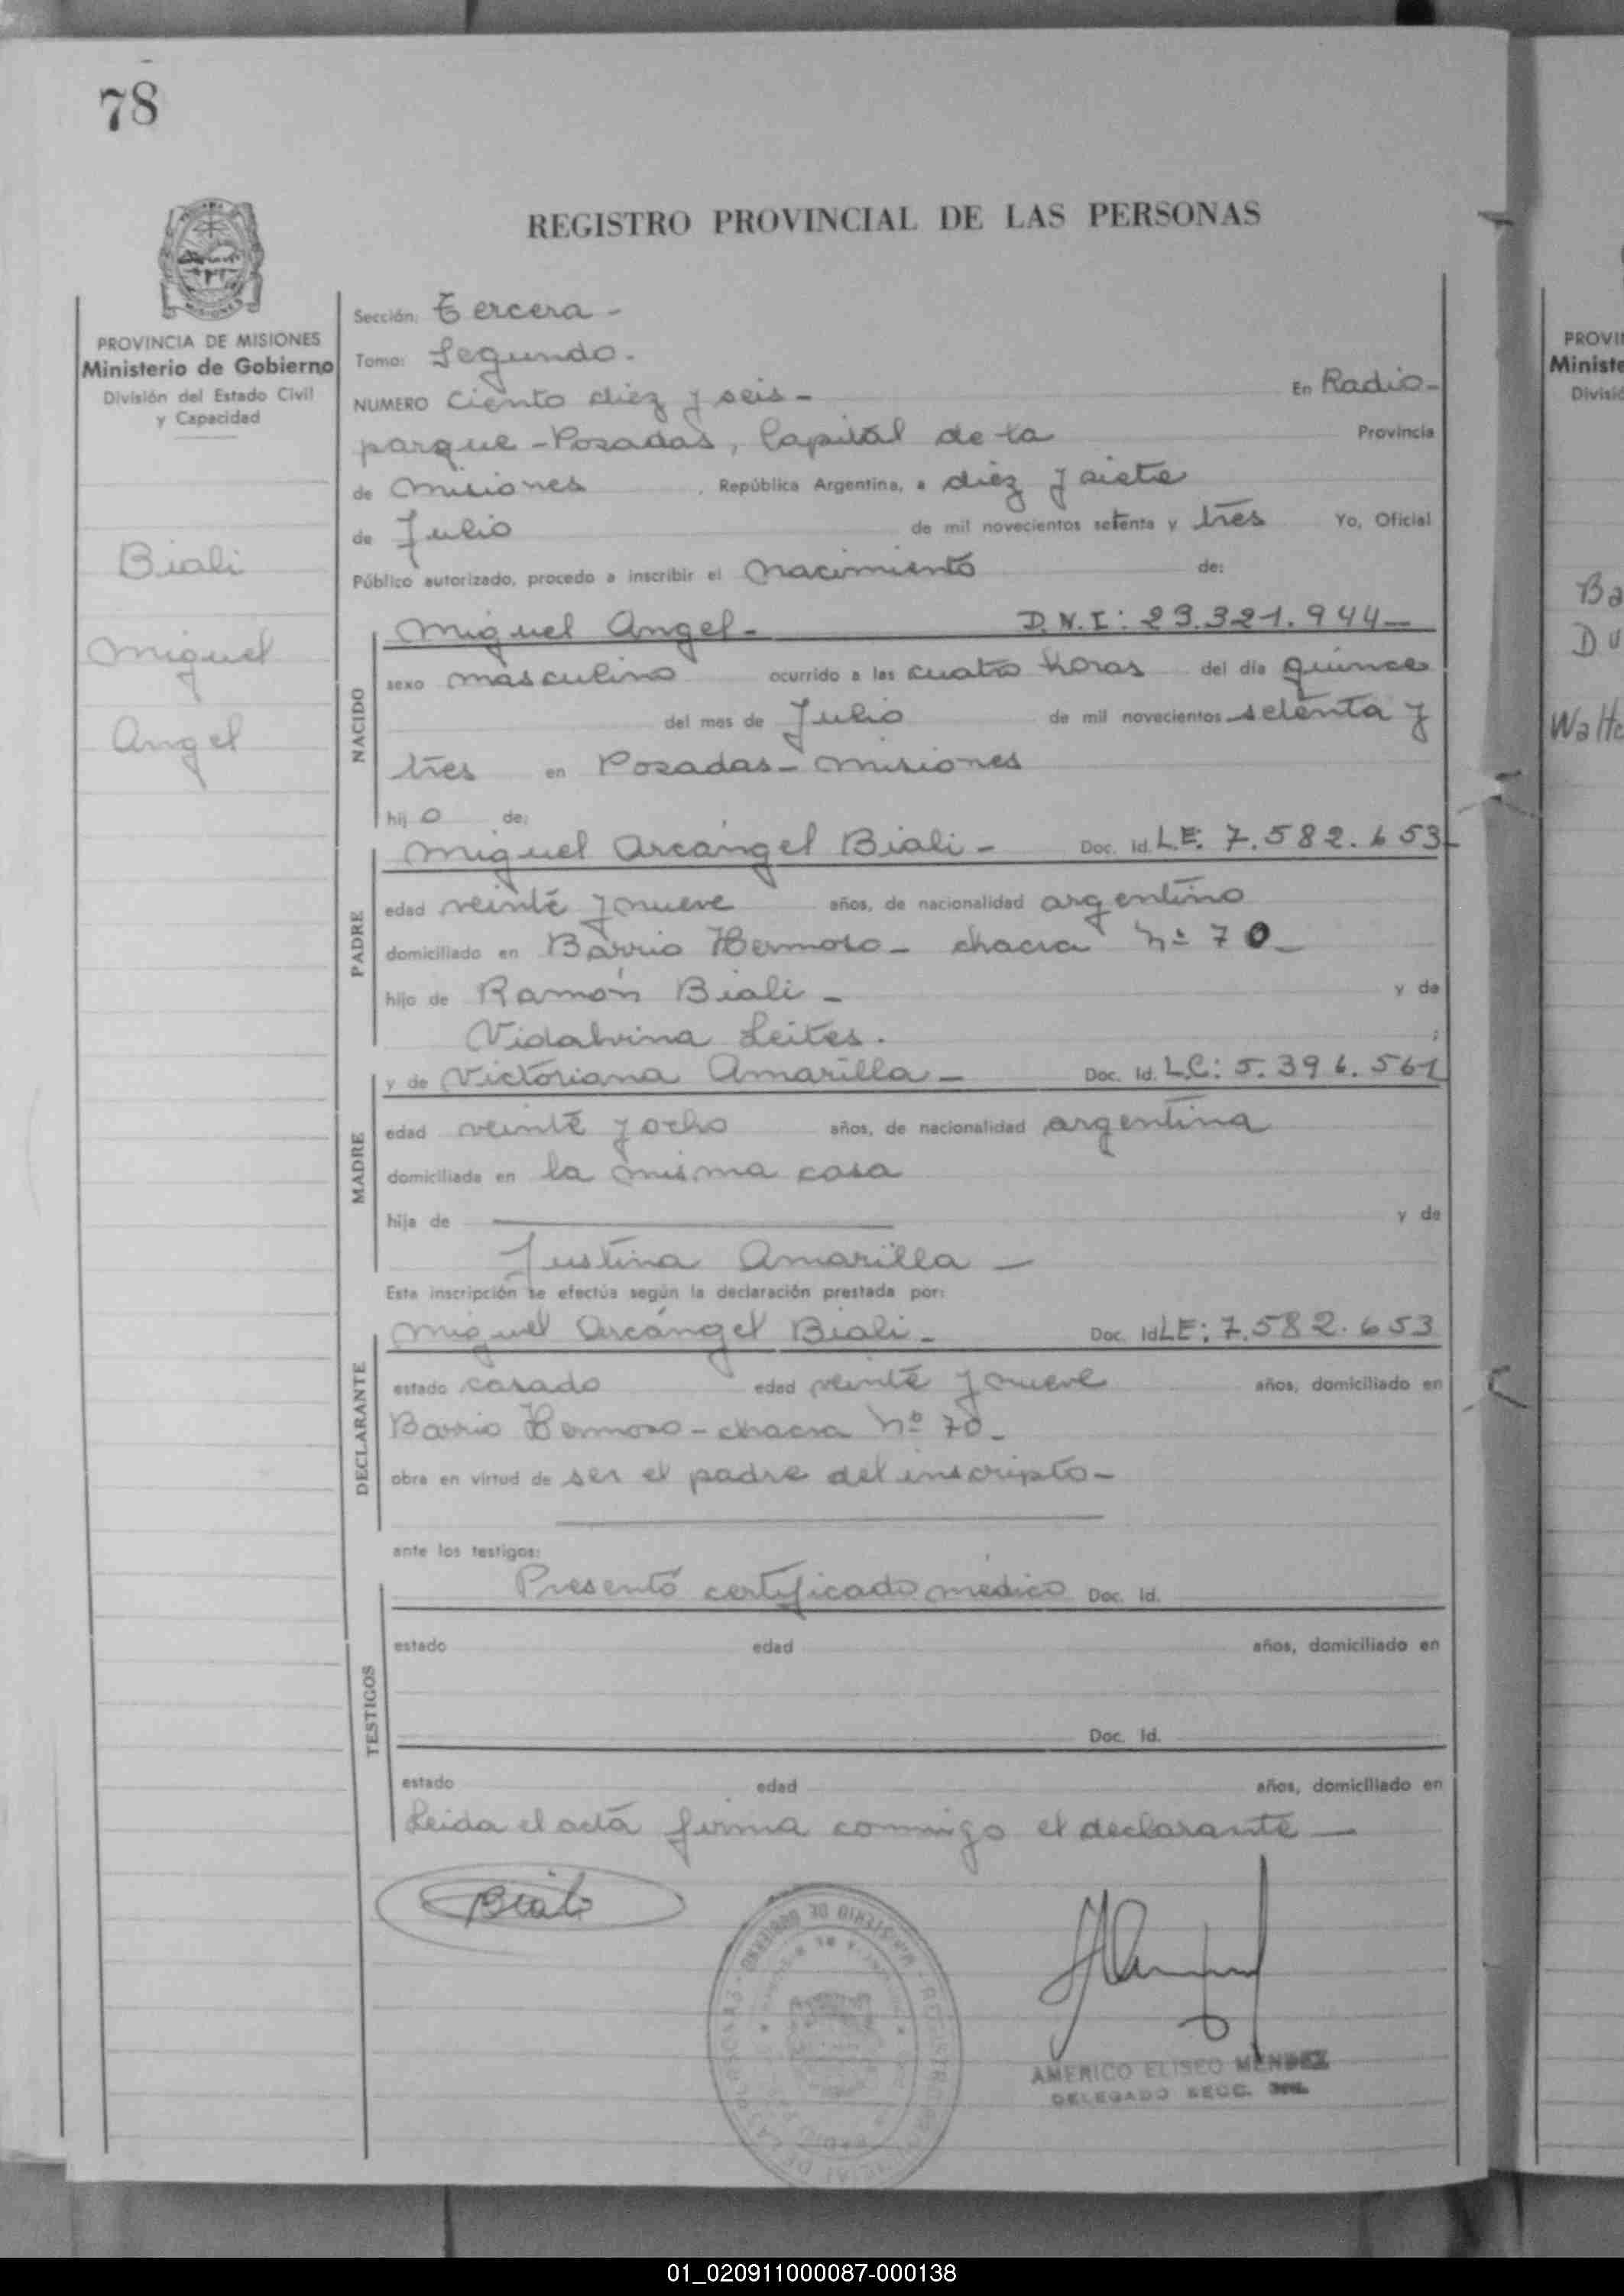 78
REGISTRO PROVINCIAL DE LAS PERSONAS
MISIONES
PROVINCIA DE MISIONES
Ministerio de Gobierno
División del Estado Civil
y Capacidad
Biali
Miguel
Angel
Sección: Tercera -
Tomo: Segundo.
NUMERO Ciento diez y seis - En Radio-
parque - Posadas, Capital de la Provincia
de Misiones, República Argentina, a diez y siete
de Julio de mil novecientos setenta y tres Yo, Oficial
Público autorizado, procedo a inscribir el Nacimiento de:
NACIDO
Miguel Angel - D.N.I: 23.321.944 -
sexo masculino ocurrido a las cuatro horas del día quince
del mes de Julio de mil novecientos setenta y
tres en Posadas - Misiones
hijo de:
PADRE
Miguel Arcángel Biali - Doc. Id. L.E: 7.582.653 -
edad veinte y nueve años, de nacionalidad argentino
domiciliado en Barrio Hermoso - chacra nº 70 -
hijo de Ramón Biali - y de
Vidalvina Leites. ;
MADRE
y de Victoriana Amarilla - Doc. Id. L.C: 5.396.561
edad veinte y ocho años, de nacionalidad argentina
domiciliada en la misma casa
hija de y de
Justina Amarilla -
Esta inscripción se efectúa según la declaración prestada por:
DECLARANTE
Miguel Arcángel Biali - Doc. Id LE: 7.582.653
estado casado edad veinte y nueve años, domiciliado en
Barrio Hermoso - chacra nº 70 -
obra en virtud de ser el padre del inscripto -
ante los testigos:
TESTIGOS
Presentó certificado médico Doc. Id.
estado edad años, domiciliado en
Doc. Id.
estado edad años, domiciliado en
Leida el acta firma conmigo el declarante -
Biali
MINISTERIO DE GOBIERNO
AMERICO ELISEO MENDEZ
DELEGADO SECC.
PROVI
Ministe
Divisió
Ba
Du
Walte
01_020911000087-000138